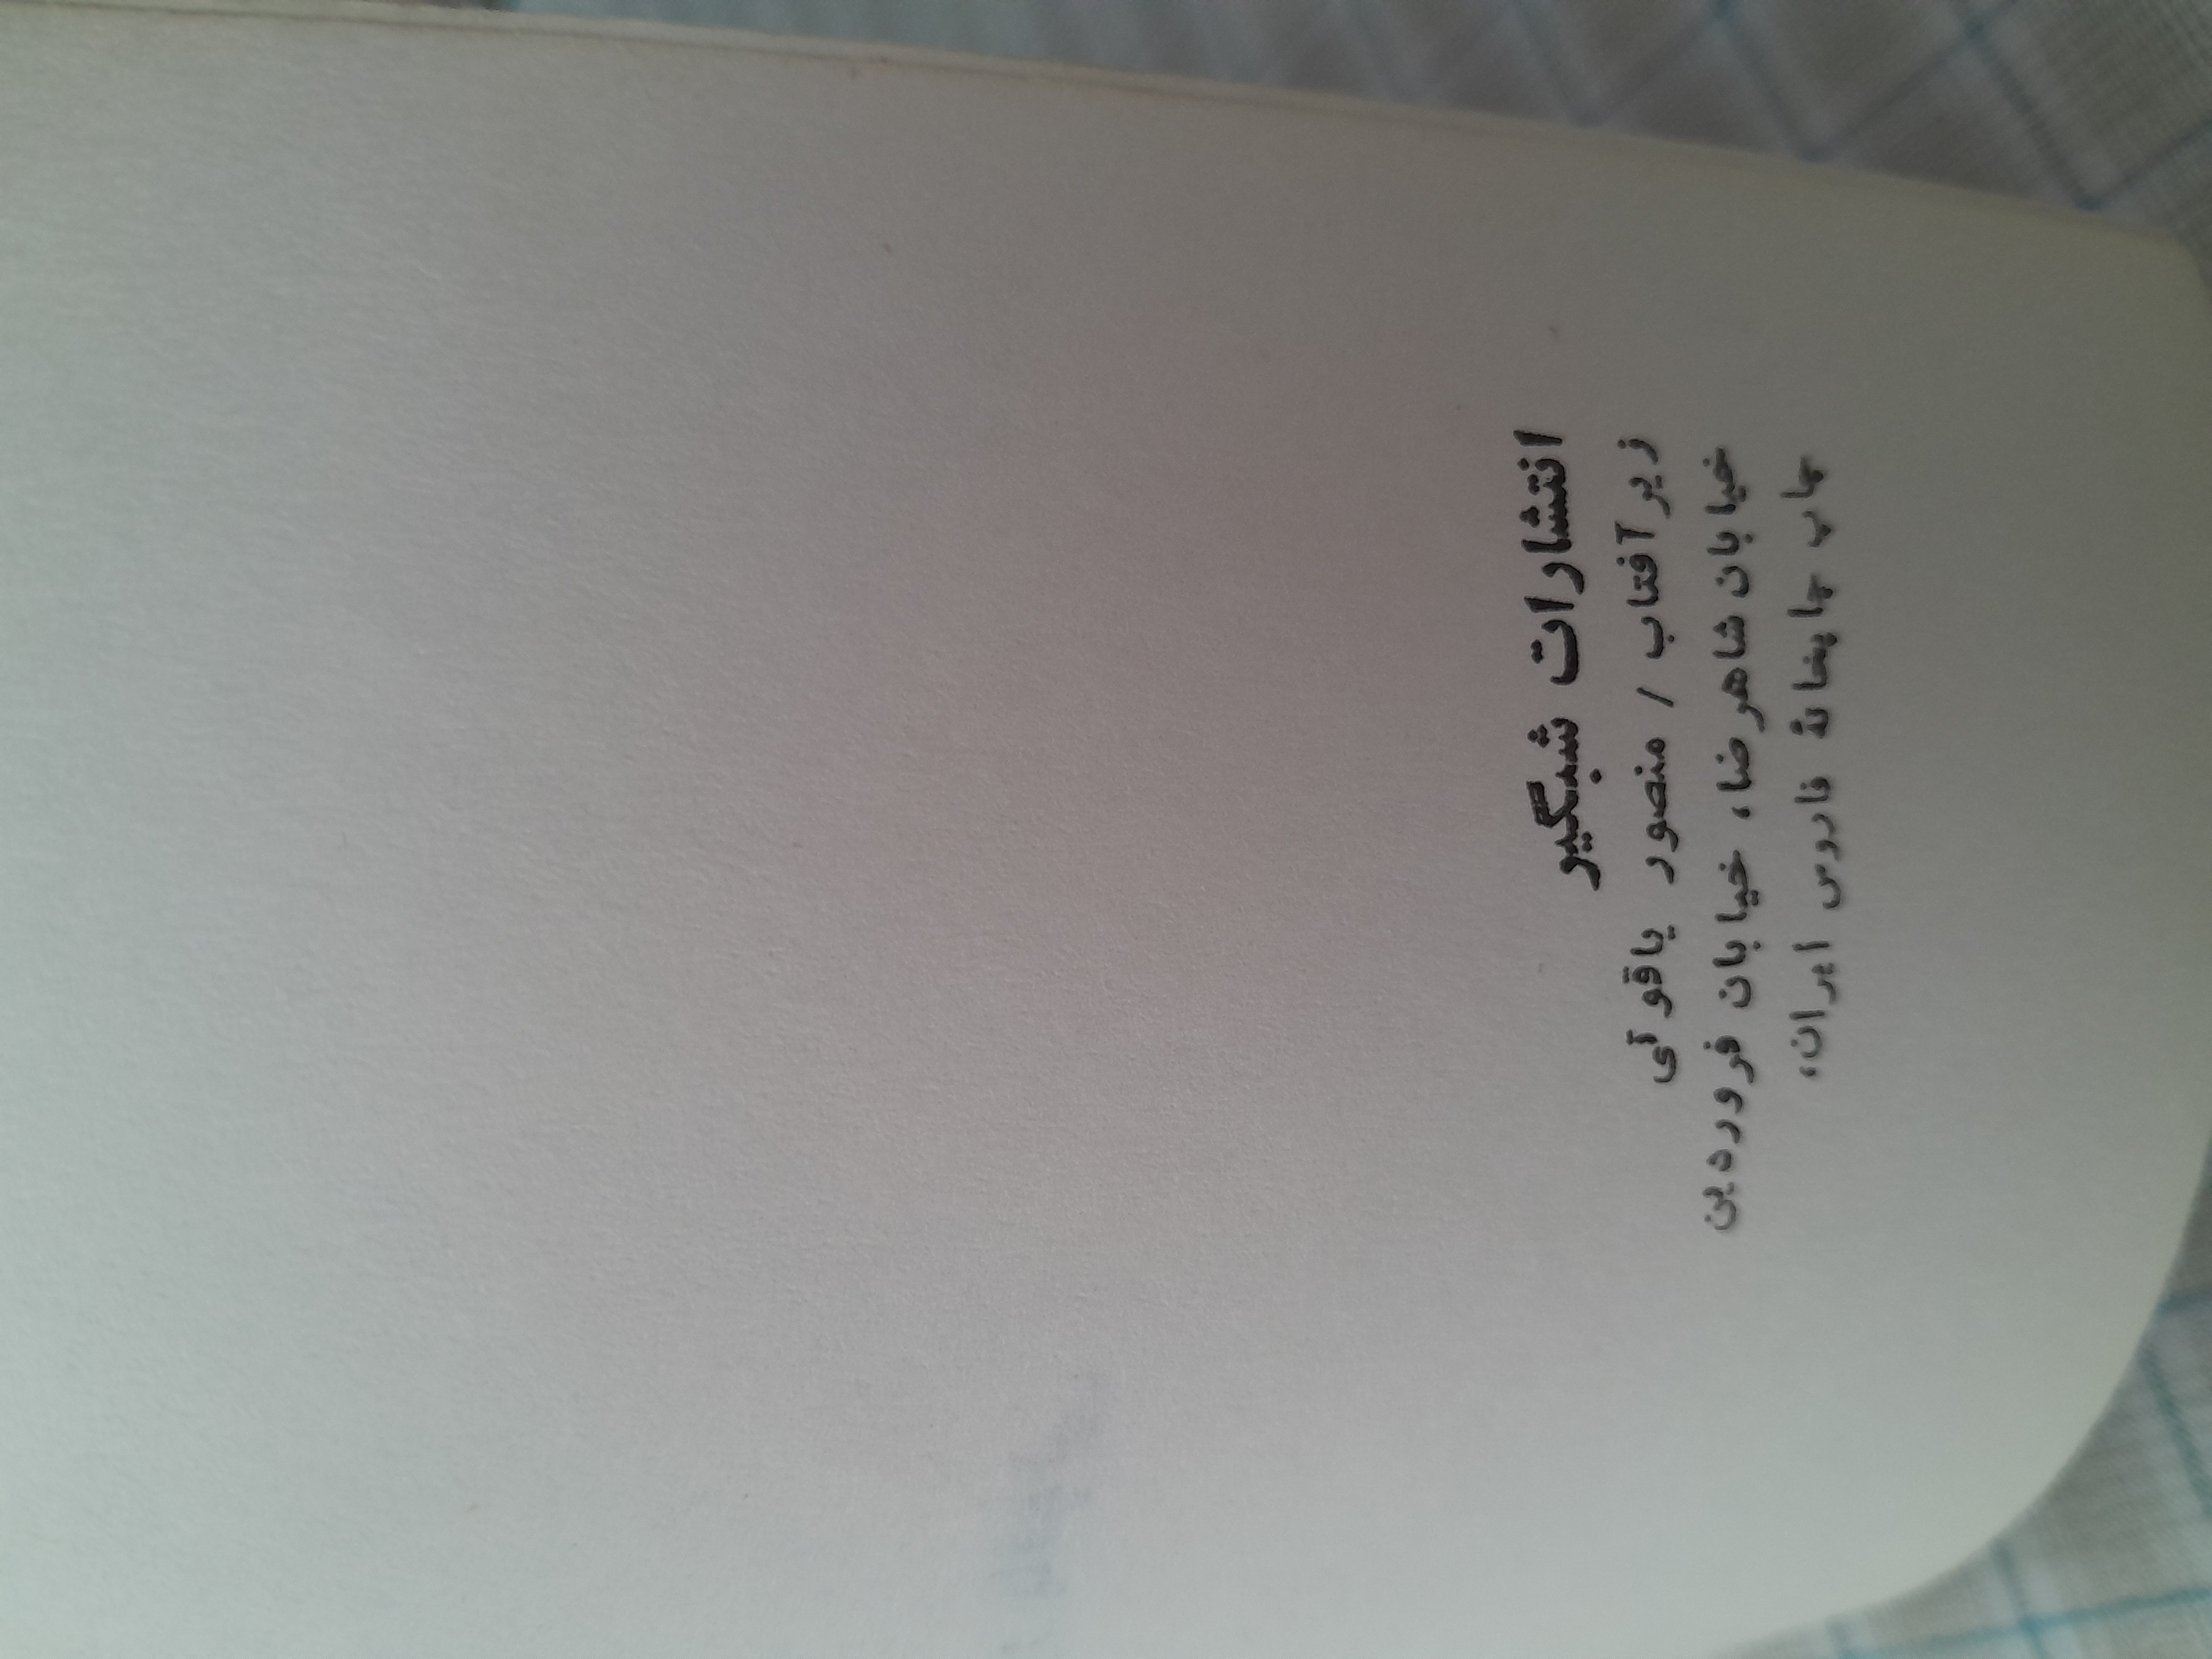 انتشارات شبگیر
زیر آفتاب / منصور یاقوتی
خیابان شاهرضا، خیابان فروردین
چاپ چاپخانهٔ فاروس ایران،